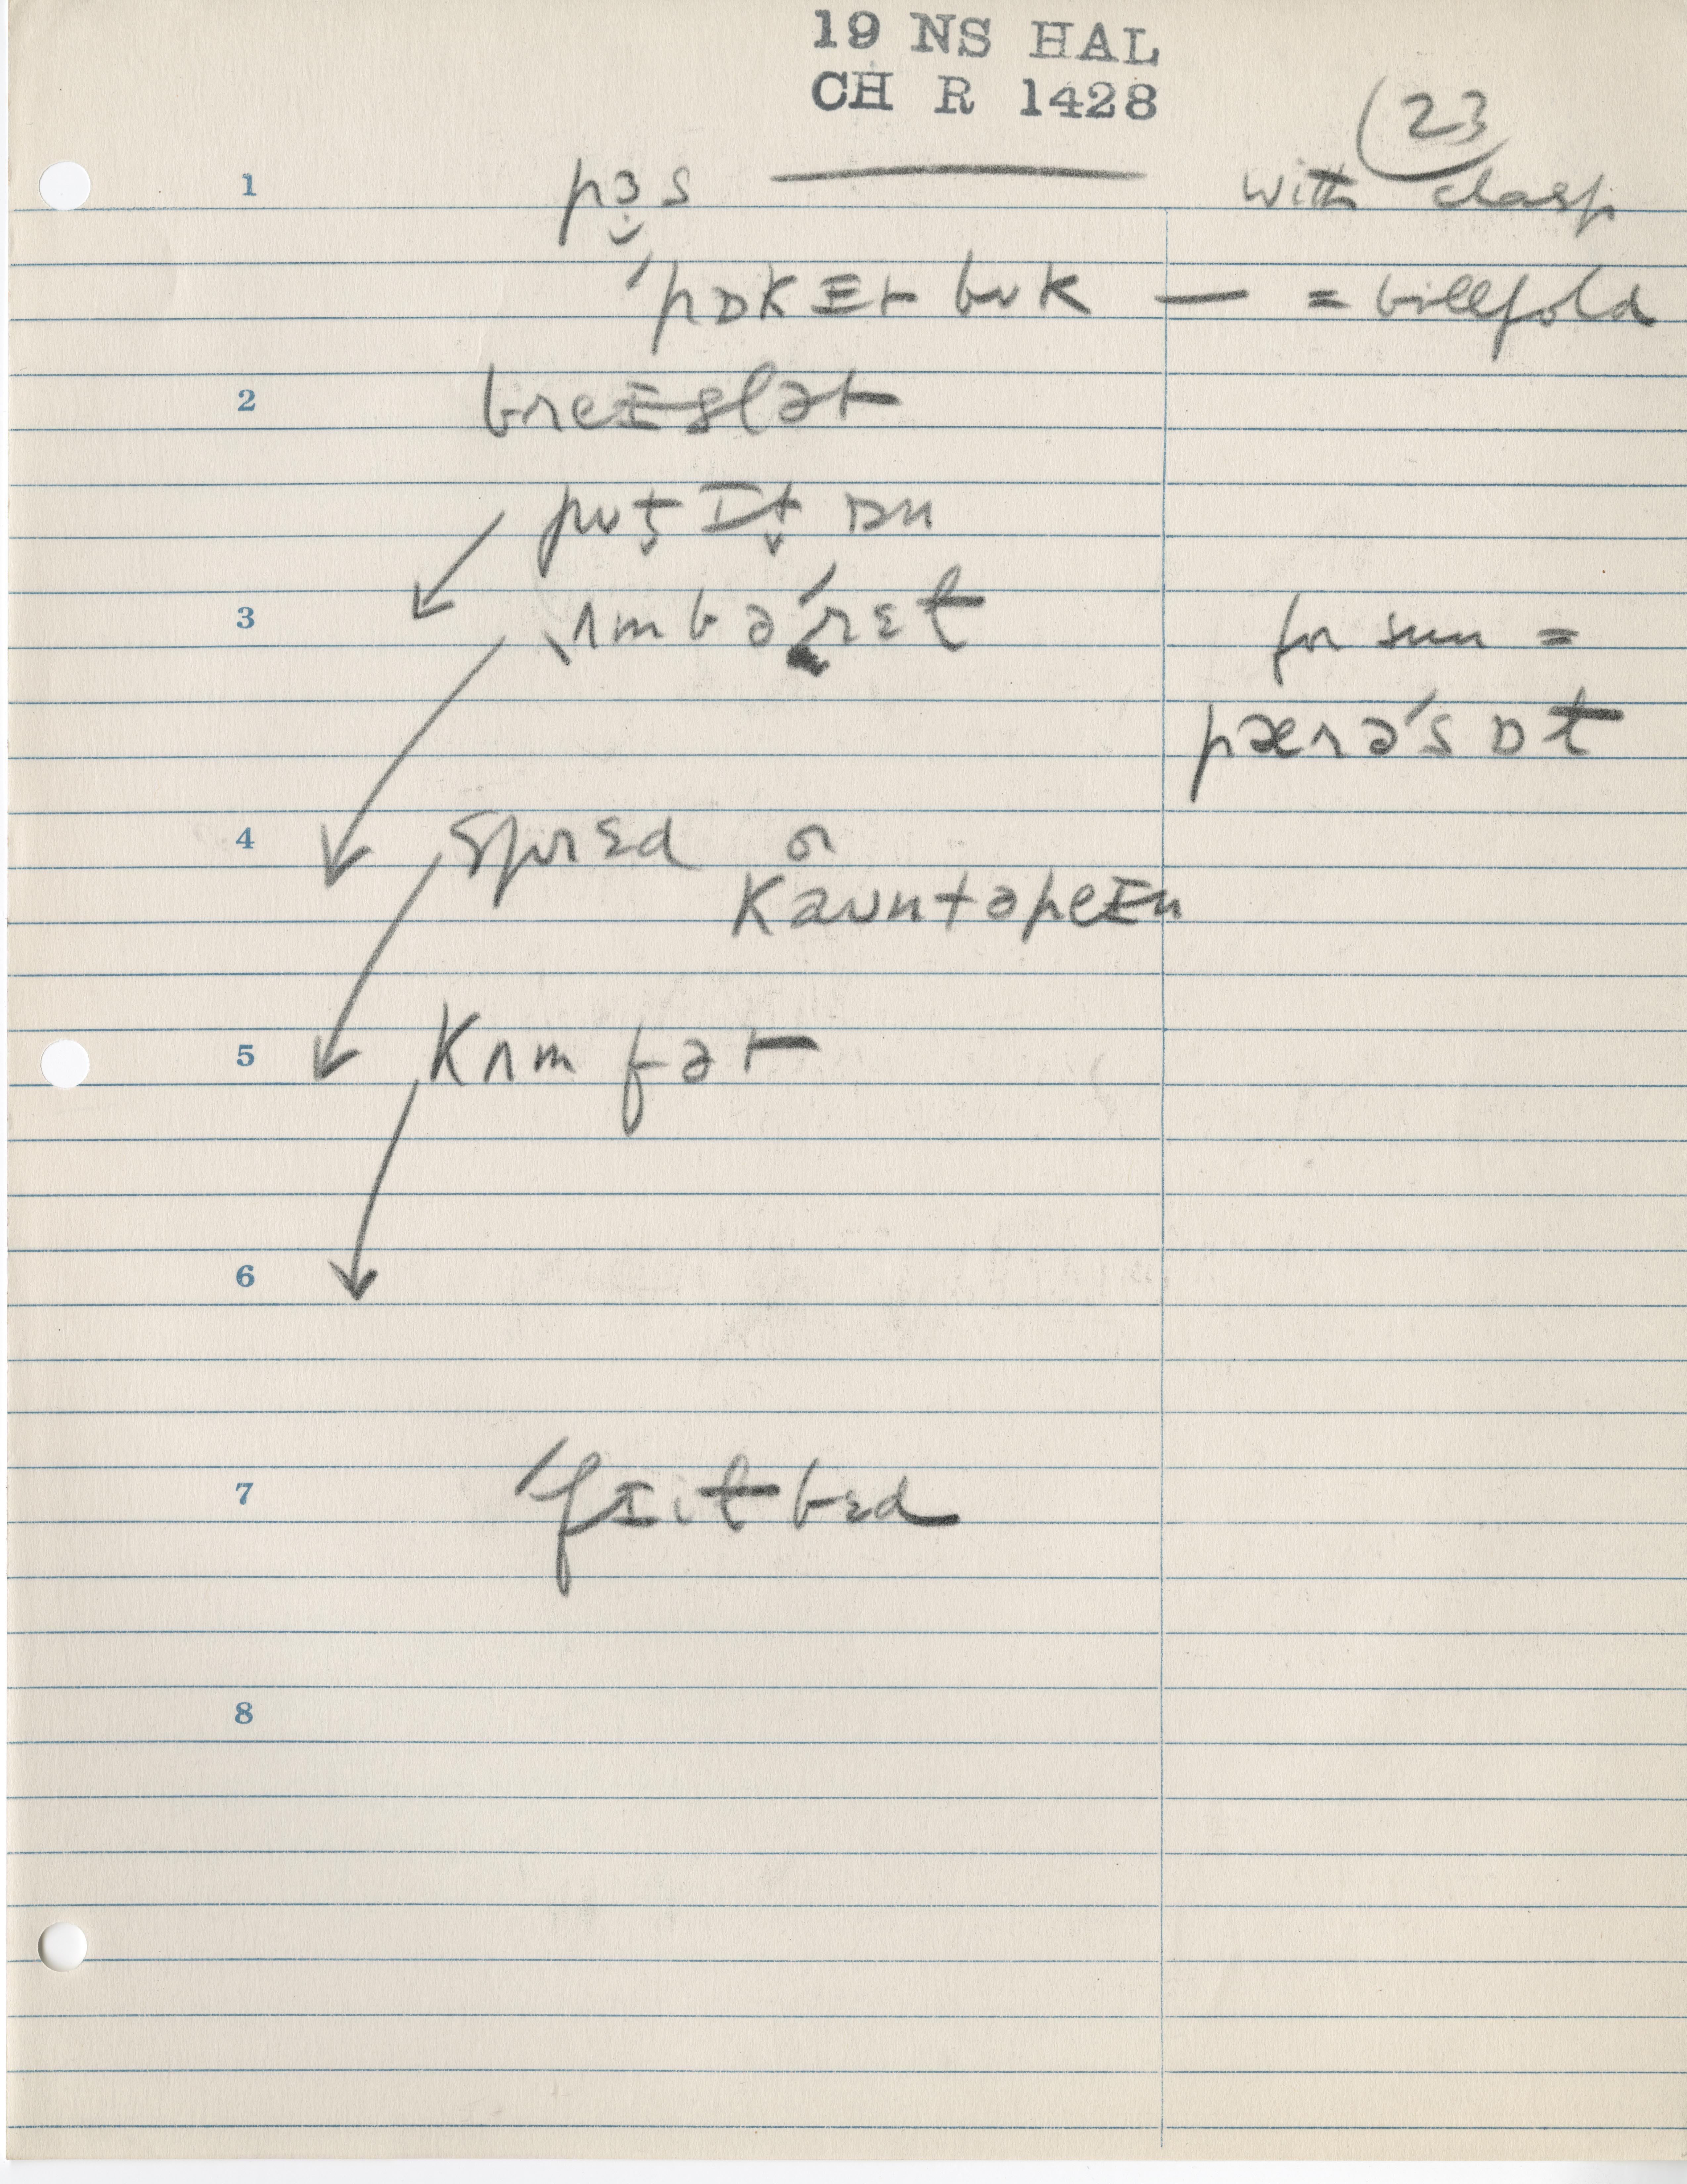 19 NS HAL
CH R 1428
23
1 pɜ̬s — with clasp
ˈpɒkɪt bʊk — = billfold
2 breɪslət
pʊt̬ ɪt̬ ɒn
3 ˌʌmbəˈrɛt for sun =
pærəˈsɒt
4 sprɛd or
kaʊntəpeɪn
5 kʌmfət
6
7 ˈfɪitbɛd
8